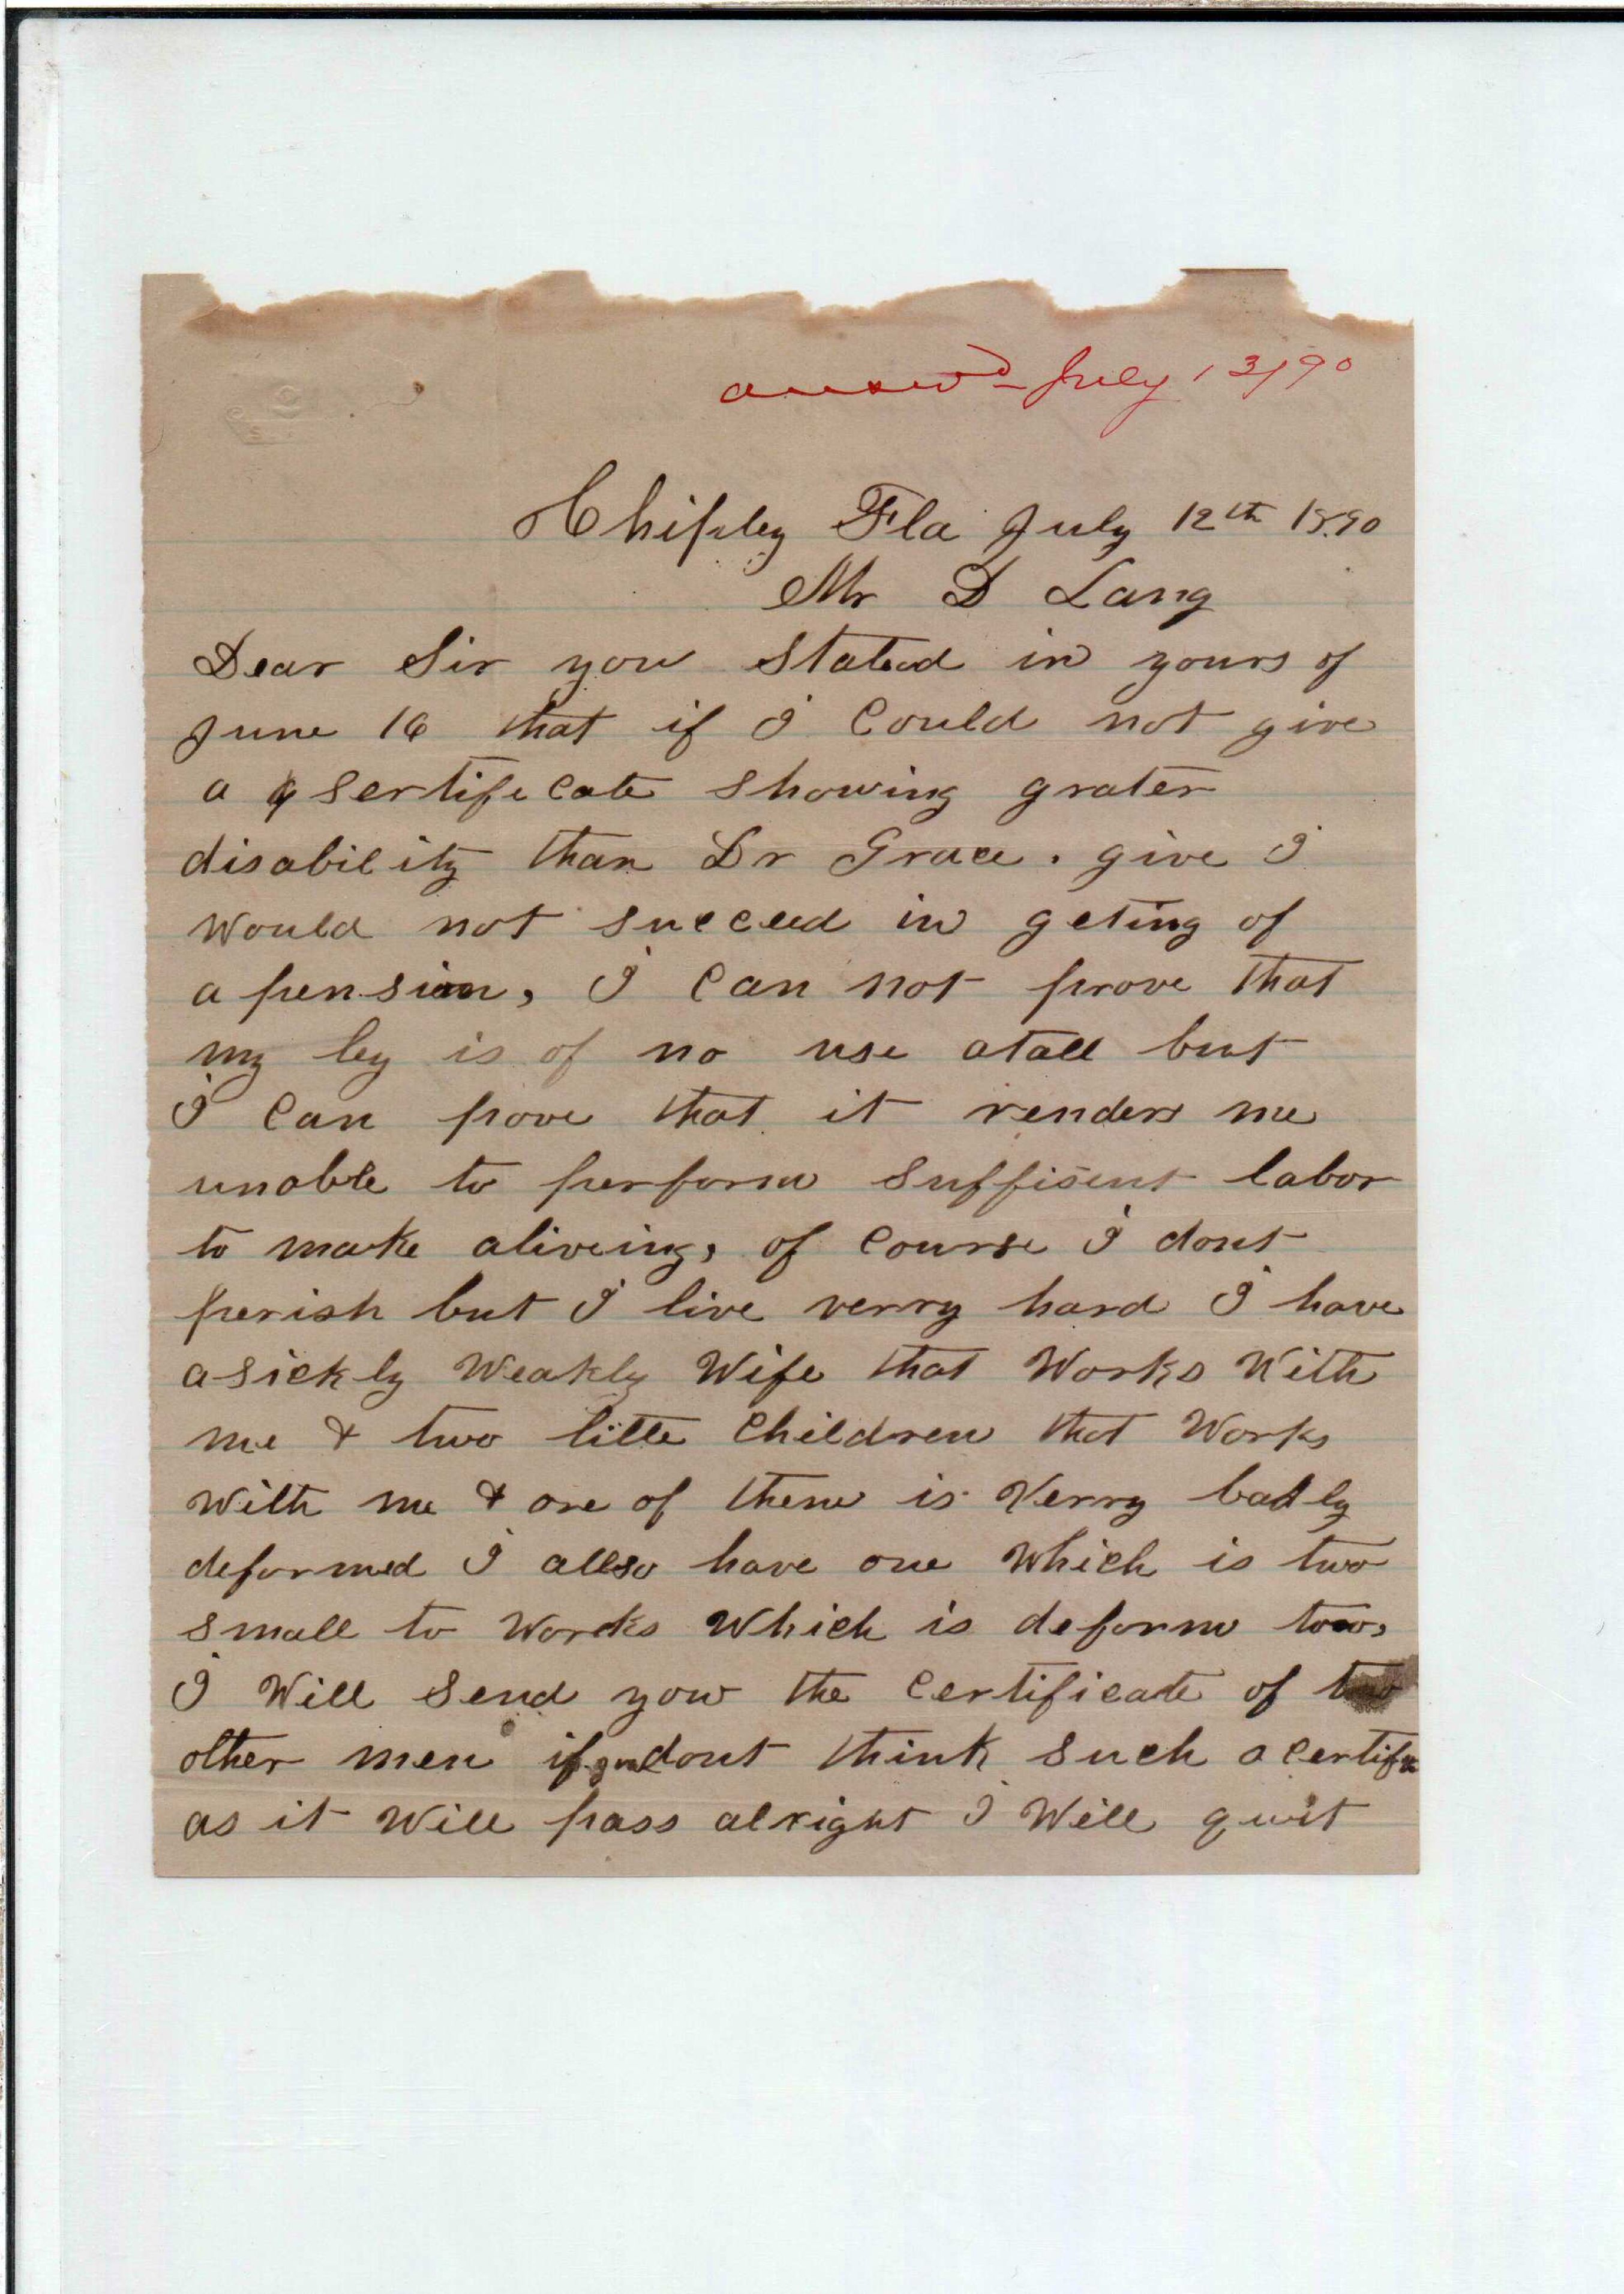 answd July 13/90
Chipley Fla July 12th 1890
Mr D Lang
Dear Sir you Stated in yours of
June 16 that if I Could not give
a sertificate showing grater
disability than Dr Grace. give I
would not succeed in geting of
a pension, I Can not prove that
my leg is of no use atall but
I Can prove that it renders me
unable to perform suffisent labor
to make aliveing, of Course I dont
perish but I live verry hard I have
a sickly Weakly Wife that Works With
me & two little Children that Works
With me & one of them is Verry badly
deformed I allso have one Which is two
small to Works Which is deform too,
I Will Send you the Certificate of two
other men if you dont think such a Certifi
as it Will pass alright I Will quit